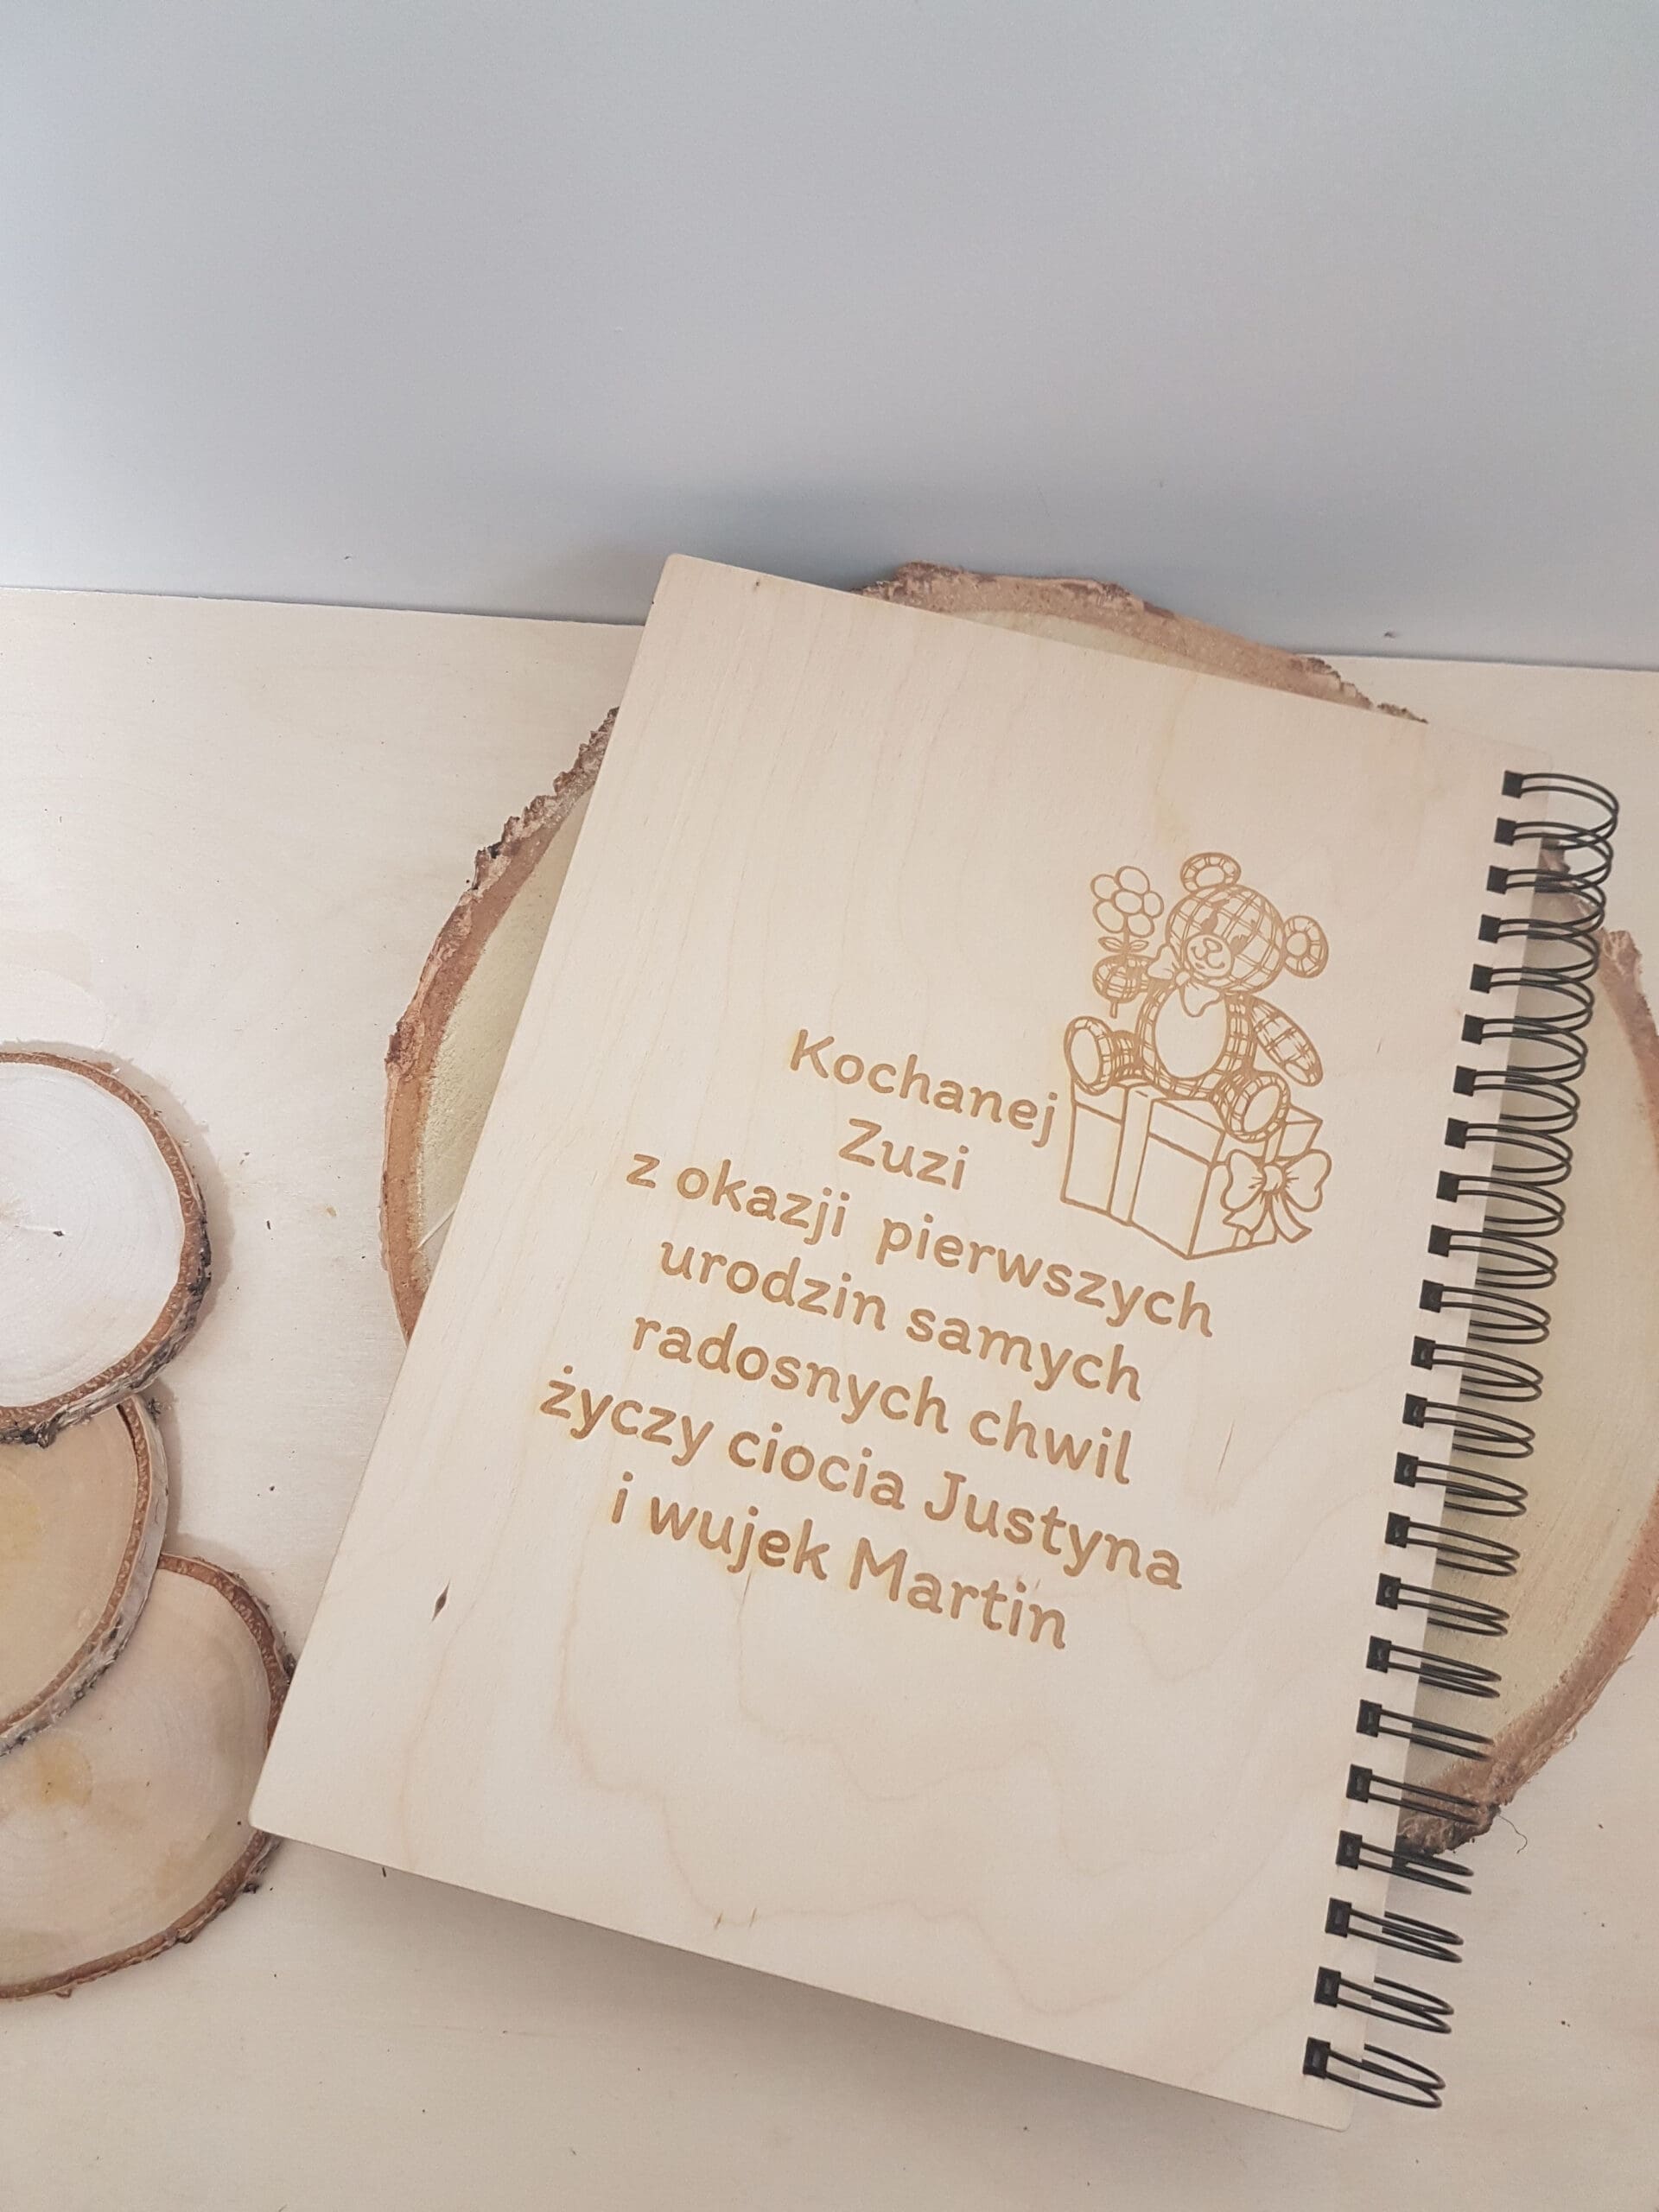 Kochanej
Zuzi
z okazji pierwszych
urodzin samych
radosnych chwil
życzy ciocia Justyna
i wujek Martin